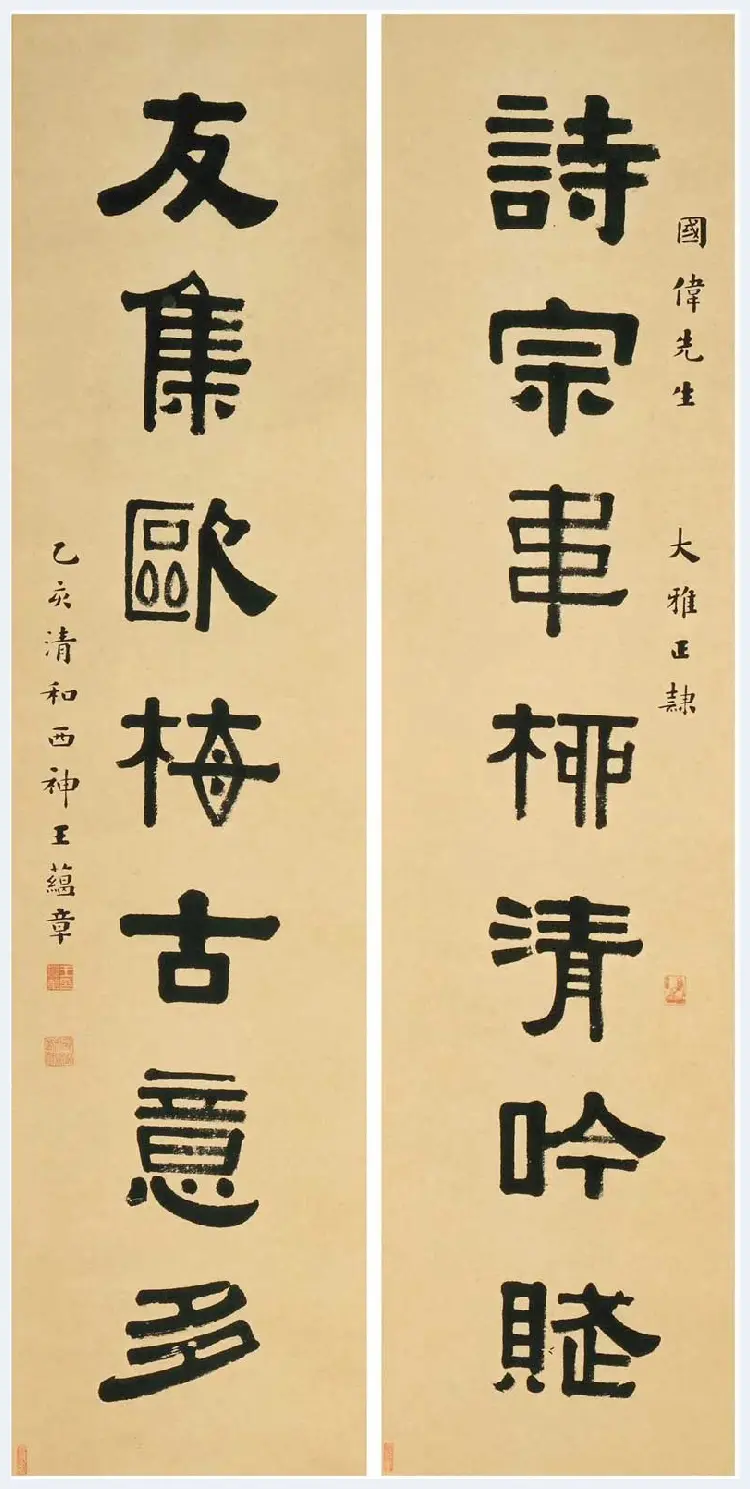 國偉先生 大雅正隸
詩宗韋柳清吟賦
友集歐梅古意多
乙亥清和西神王藴章